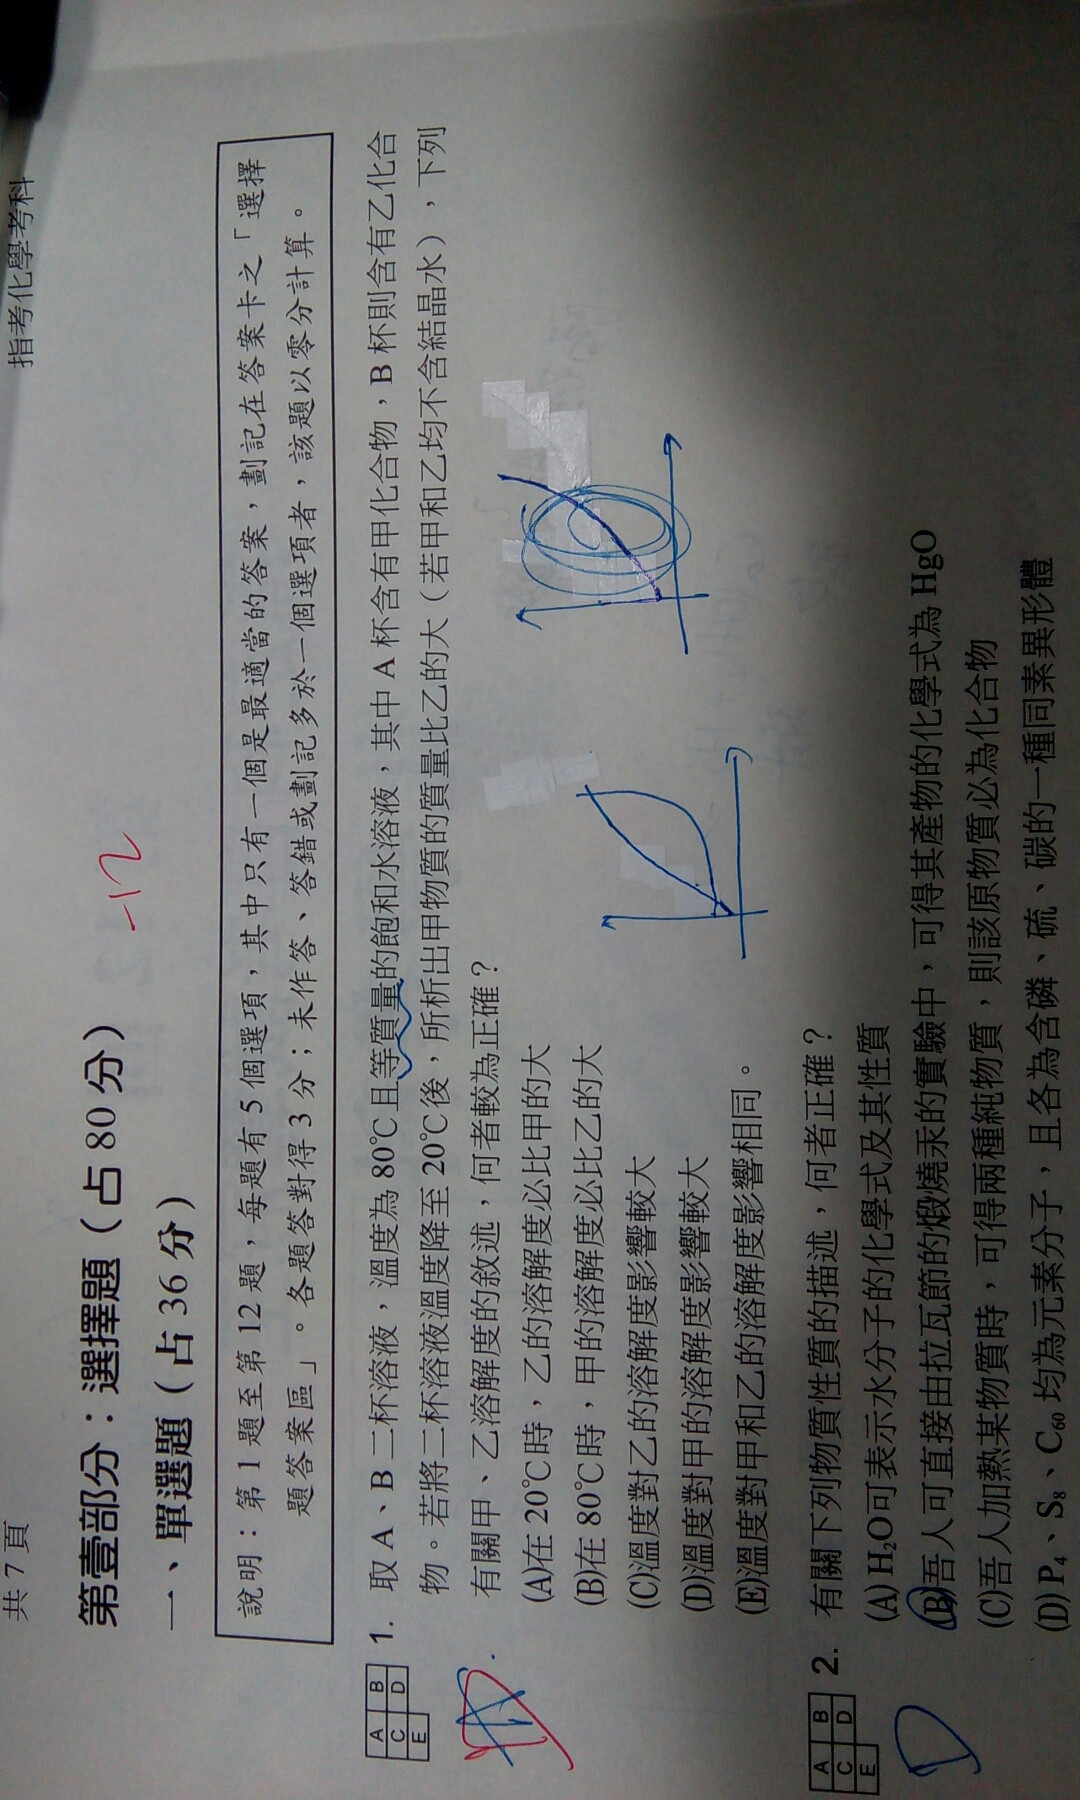 共 7 頁
指考化學考科
第壹部分：選擇題（占 80 分）
-12
一、單選題（占 36 分）
說明：第 1 題至第 12 題，每題有 5 個選項，其中只有一個是最適當的答案，劃記在答案卡之「選擇
題答案區」。各題答對得 3 分；未作答、答錯或劃記多於一個選項者，該題以零分計算。
A B
C D
E
1. 取 A、B 二杯溶液，溫度為 80℃且等質量的飽和水溶液，其中 A 杯含有甲化合物，B 杯則含有乙化合
物。若將二杯溶液溫度降至 20℃後，所析出甲物質的質量比乙的大（若甲和乙均不含結晶水），下列
有關甲、乙溶解度的敘述，何者較為正確？
(A)在 20℃時，乙的溶解度必比甲的大
(B)在 80℃時，甲的溶解度必比乙的大
(C)溫度對乙的溶解度影響較大
(D)溫度對甲的溶解度影響較大
(E)溫度對甲和乙的溶解度影響相同。
D
A B
C D
E
2. 有關下列物質性質的描述，何者正確？
(A) H₂O可表示水分子的化學式及其性質
(B)吾人可直接由拉瓦節的煅燒汞的實驗中，可得其產物的化學式為 HgO
(C)吾人加熱某物質時，可得兩種純物質，則該原物質必為化合物
(D) P₄、S₈、C₆₀ 均為元素分子，且各為含磷、硫、碳的一種同素異形體
D